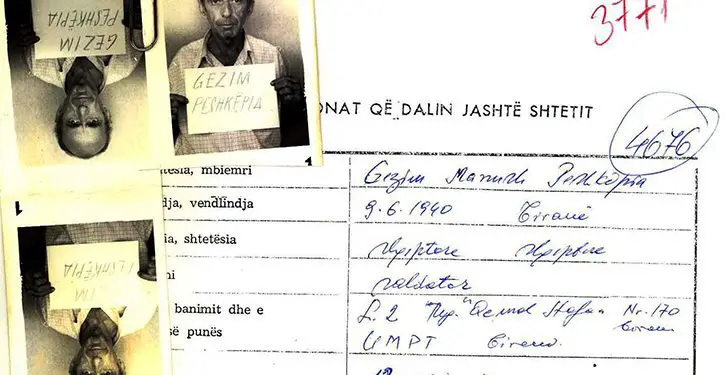 GEZIM
PESHKËPIA
GEZIM
PESHKËPIA.
3771
ONAT QË DALIN JASHTË SHTETIT
4676
tësia, mbiemri Gezim Manush Peshkëpia
dja, vendlindja 9.6.1940 Tiranë
ia, shtetësia shqiptare shqiptare
ni saldator
banimit dhe e L. 2 Rrg. "Qemal Stafa" Nr. 170
Tiranë
së punës UMPT Tiranë.
PESHKËPIA
IM
1
1